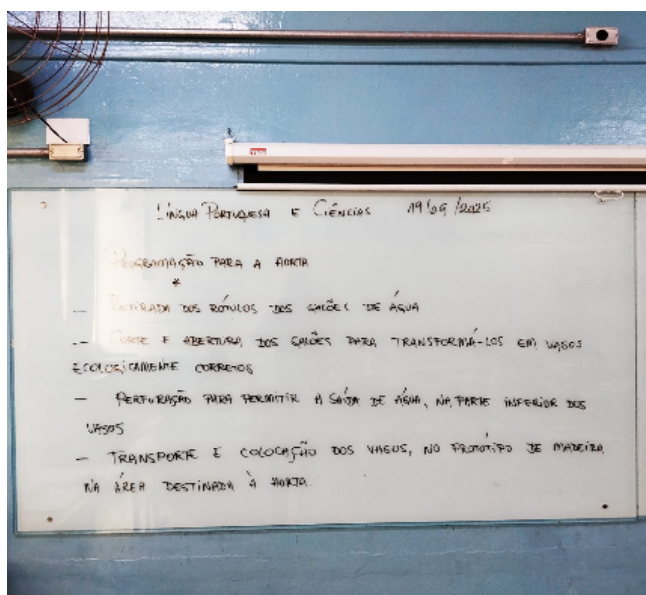 Língua Portuguesa e Ciências 19/09/2025
Programação para a horta
*
— Retirada dos rótulos dos galões de água
— Corte e abertura dos galões para transformá-los em vasos
ecologicamente corretos
— Perfuração para permitir a saída de água, na parte inferior dos
vasos
— Transporte e colocação dos vasos, no protótipo de madeira
na área destinada à horta.